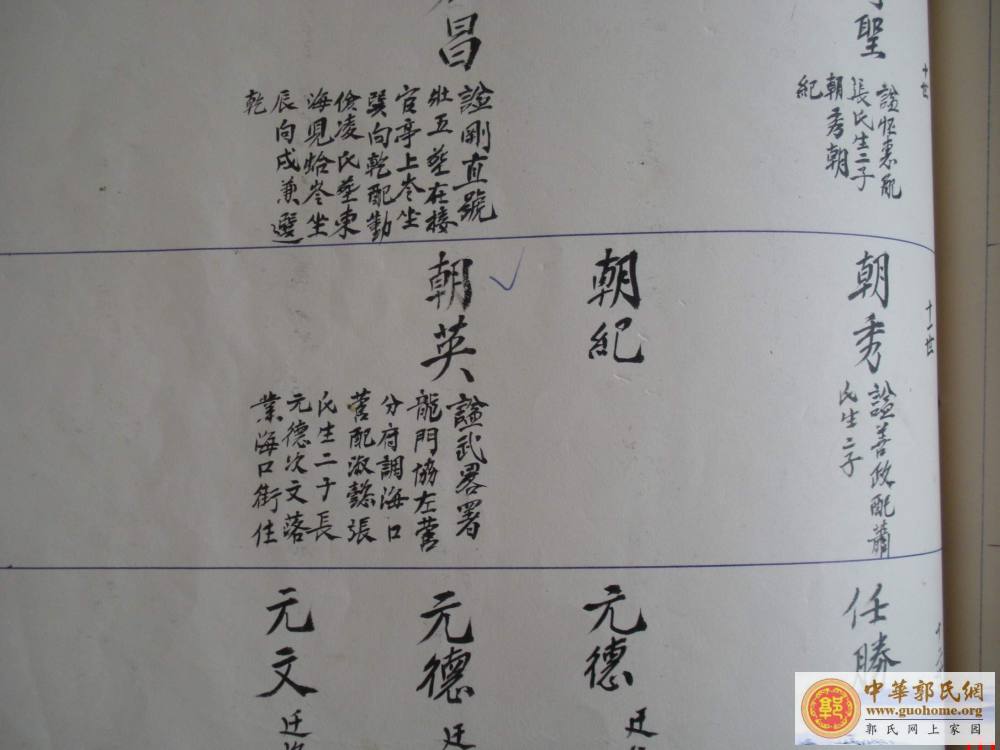 十世
聖
諡恒惠配
張氏生二子
朝秀朝
紀
昌
諡剛直號
壯五葬在樓
官亭上岑坐
巽向乾配勤
儉凌氏葬東
海見蛤岑坐
辰向戌兼巽
乾
十一世
朝秀
諡善政配蕭
氏生二子
朝紀
朝英
諡武畧署
龍門協左營
分府調海口
營配淑懿張
氏生二子長
元德次文落
業海口街住
任勝
元德
迁
元德
迁
元文
迁
中華郭氏網
www.guohome.org
郭氏网上家园